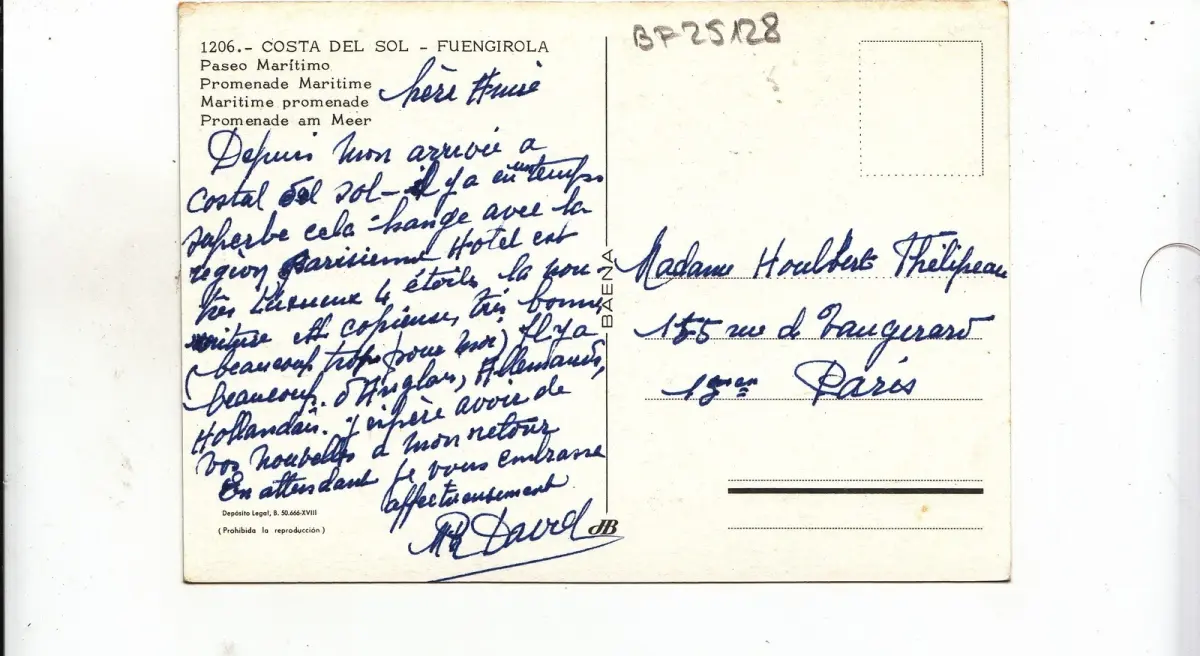 BF 25128
1206.- COSTA DEL SOL - FUENGIROLA
Paseo Marítimo
Promenade Maritime
Maritime promenade
Promenade am Meer
Chère Amie
Depuis mon arrivée a
Costal del sol - il y a eu un temps
superbe cela change avec la
region parisienne Hotel est
très Luxueux 4 étoiles la nou
riture est copieuse, très bonne,
(beaucoup trop pour moi) Il y a
beaucoup d'Anglais, Allemands,
Hollandais. J'espère avoir de
vos nouvelles a mon retour
En attendant je vous embrasse
affectueusement
David
Depósito Legal, B. 50.666-XVIII
(Prohibida la reproducción)
BAENA
JB
Madame Houlbert Thélipeau
155 rue d Vaugirard
Paris